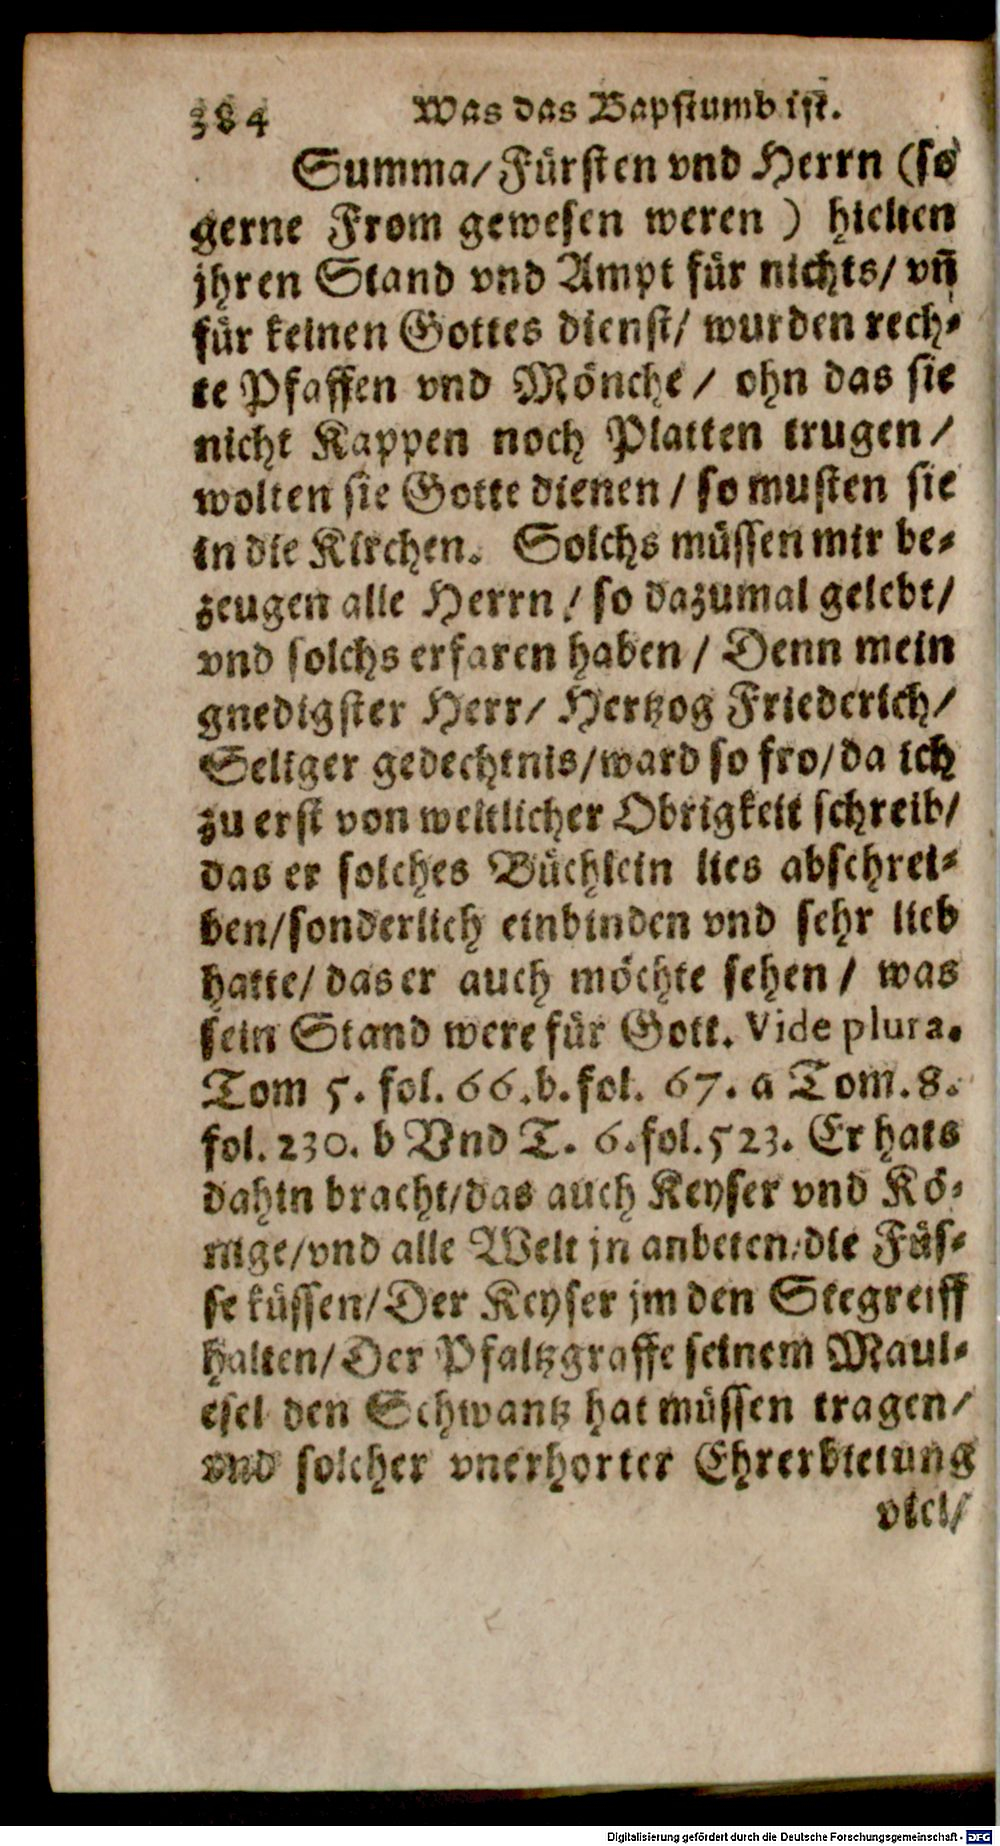 384 Was das Bapstumb ist.
Summa/ Fürsten vnd Herrn (so
gerne From gewesen weren ) hielten
jhren Stand vnd Ampt für nichts/ vn̄
für keinen Gottes dienst/ wurden rech-
te Pfaffen vnd Mönche / ohn das sie
nicht Kappen noch Platten trugen /
wolten sie Gotte dienen / so musten sie
in die Kirchen. Solchs müssen mir be-
zeugen alle Herrn / so dazumal gelebt/
vnd solchs erfaren haben / Denn mein
gnedigster Herr/ Hertzog Friederich/
Seliger gedechtnis/ ward so fro/ da ich
zu erst von weltlicher Obrigkeit schreib/
das er solches Büchlein lies abschrei-
ben/ sonderlich einbinden vnd sehr lieb
hatte/ das er auch möchte sehen / was
sein Stand were für Gott. Vide plura.
Tom 5. fol. 66. b. fol. 67. a Tom. 8.
fol. 230. b Vnd T. 6. fol. 523. Er hats
dahin bracht/ das auch Keyser vnd Kö-
nige/ vnd alle Welt jn anbeten/ die Füs-
se küssen/ Der Keyser jm den Stegreiff
halten/ Der Pfaltzgraffe seinem Maul-
esel den Schwantz hat müssen tragen/
vnd solcher vnerhorter Ehrerbietung
viel/
Digitalisierung gefördert durch die Deutsche Forschungsgemeinschaft - DFG